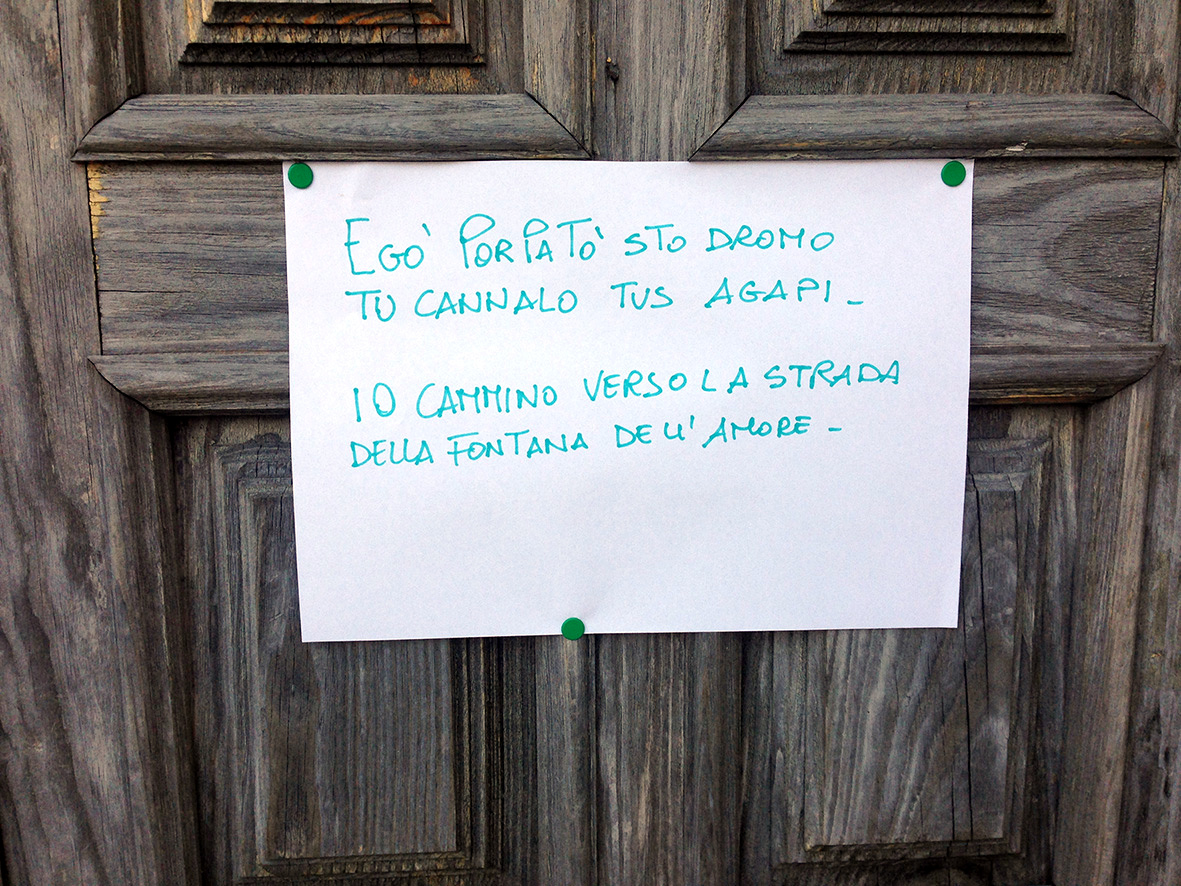 EGO' PORPATO' STO DROMO
TU CANNALO TUS AGAPI_
IO CAMMINO VERSO LA STRADA
DELLA FONTANA DELL' AMORE_